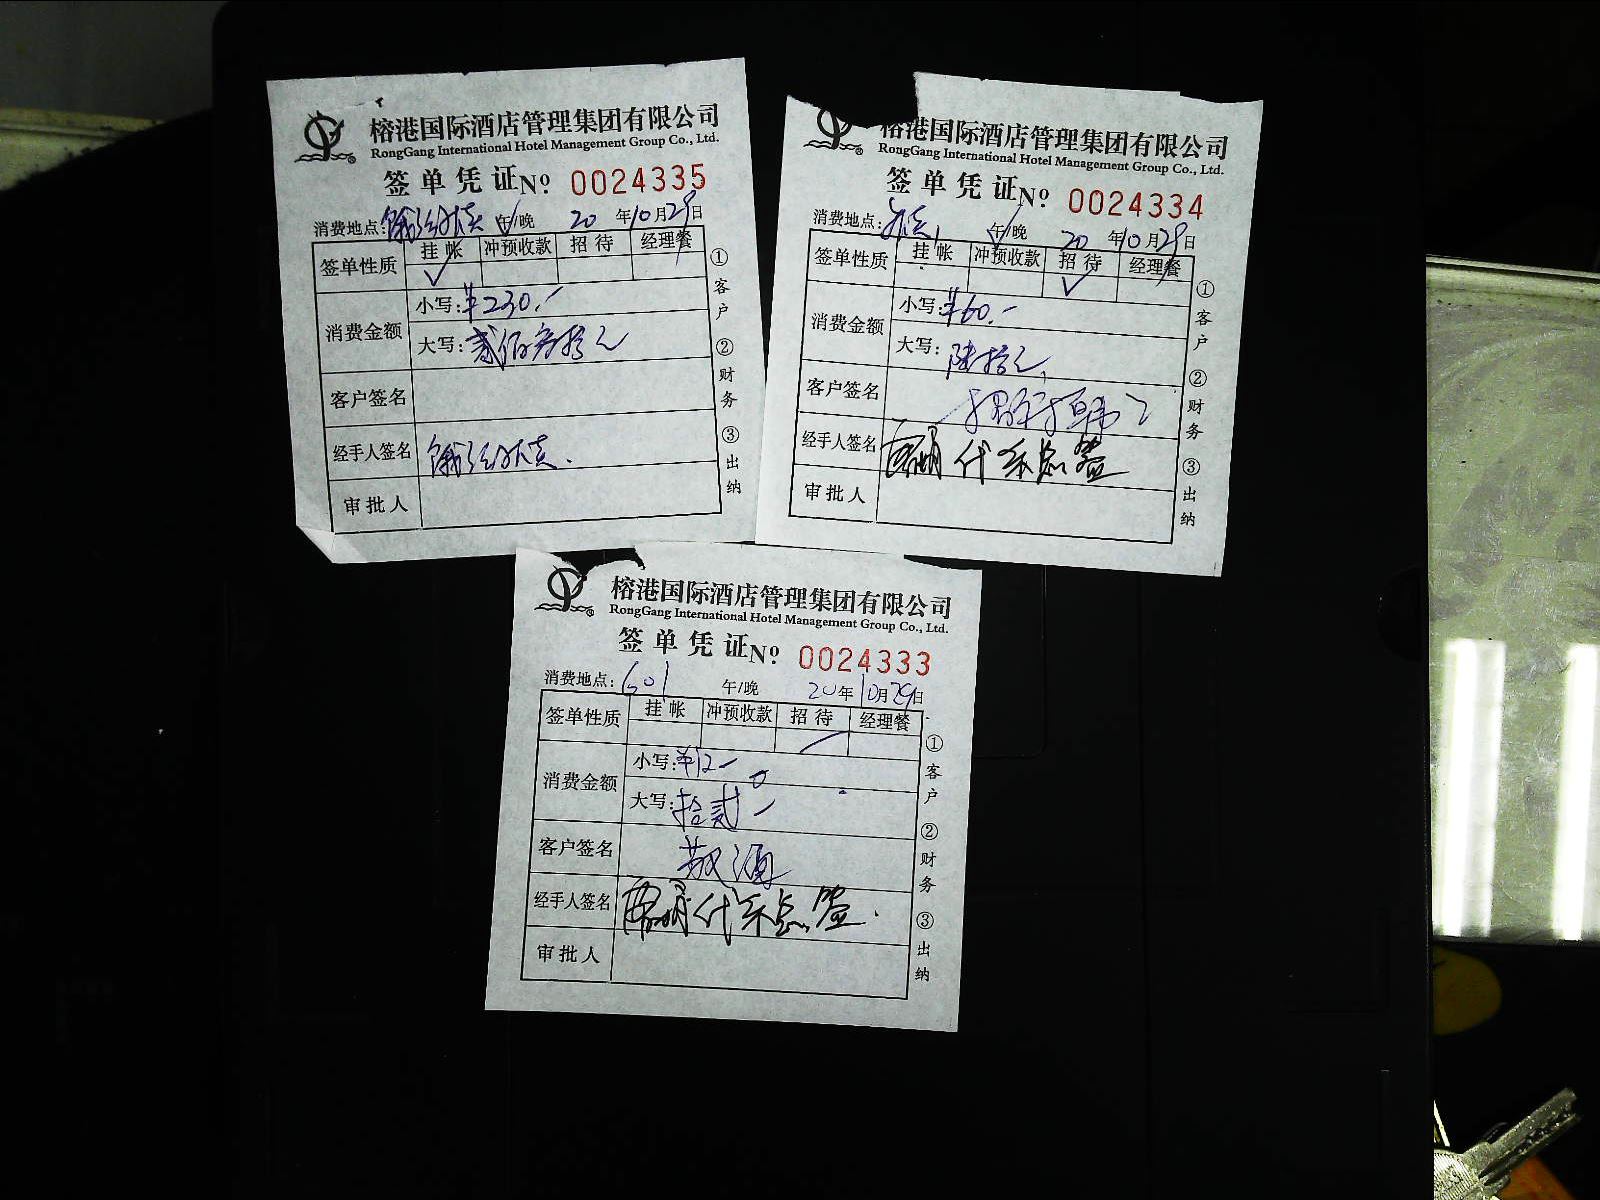 榕港国际酒店管理集团有限公司
RongGang International Hotel Management Group Co., Ltd.
签单凭证 No. 0024335
消费地点: 午/晚 20年10月29日
签单性质 挂帐 冲预收款 招待 经理餐
✓
消费金额 小写:¥230.-
大写:贰佰叁拾元
客户签名
经手人签名
审批人
①客户 ②财务 ③出纳
榕港国际酒店管理集团有限公司
RongGang International Hotel Management Group Co., Ltd.
签单凭证 No. 0024334
消费地点: 午/晚 20年10月29日
签单性质 挂帐 冲预收款 招待 经理餐
✓
消费金额 小写:¥60.-
大写:陆拾元
客户签名
经手人签名 代 总签
审批人
①客户 ②财务 ③出纳
榕港国际酒店管理集团有限公司
RongGang International Hotel Management Group Co., Ltd.
签单凭证 No. 0024333
消费地点:601 午/晚 20年10月29日
签单性质 挂帐 冲预收款 招待 经理餐
消费金额 小写:¥12-
大写:拾贰-
客户签名 敬酒
经手人签名 代 总签
审批人
①客户 ②财务 ③出纳